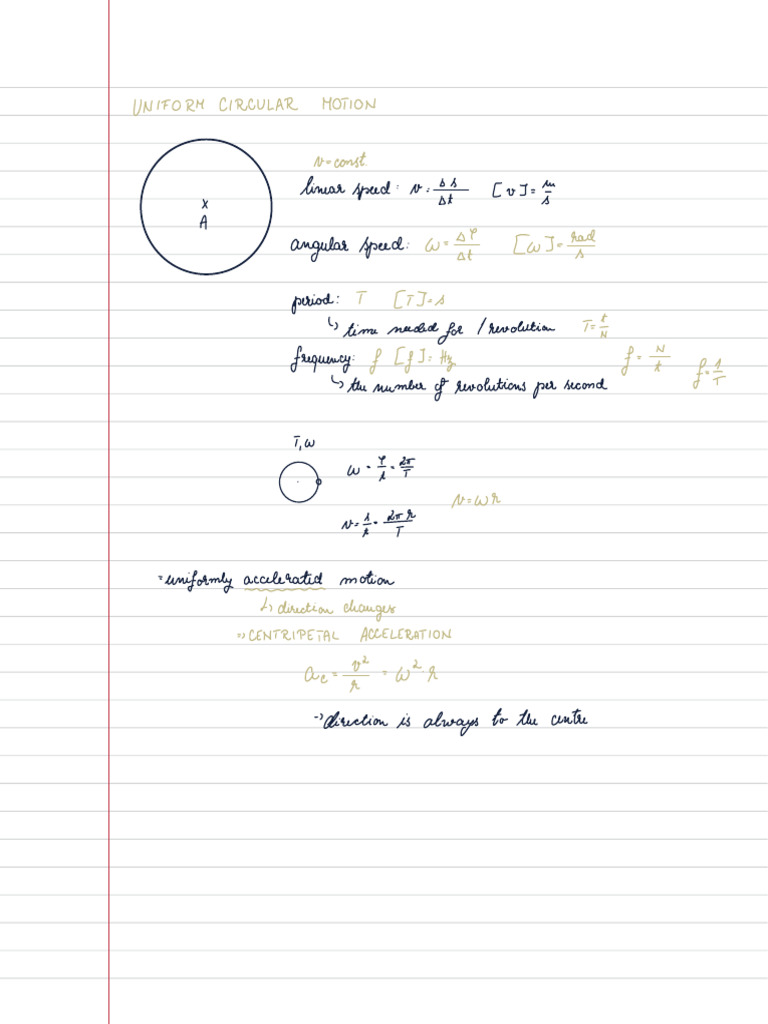 UNIFORM CIRCULAR MOTION
v=const.
linear speed: v = Δs/Δt [v] = m/s
x
A
angular speed: ω = Δφ/Δt [ω] = rad/s
period: T [T]=s
↳ time needed for 1 revolution T = t/N
frequency: f [f] = Hz f = N/t f = 1/T
↳ the number of revolutions per second
T, ω
ω = φ/t = 2π/T
v = ωr
v = s/t = 2πr/T
uniformly accelerated motion
↳ direction changes
CENTRIPETAL ACCELERATION
ac = v²/r = ω²·r
→ direction is always to the centre